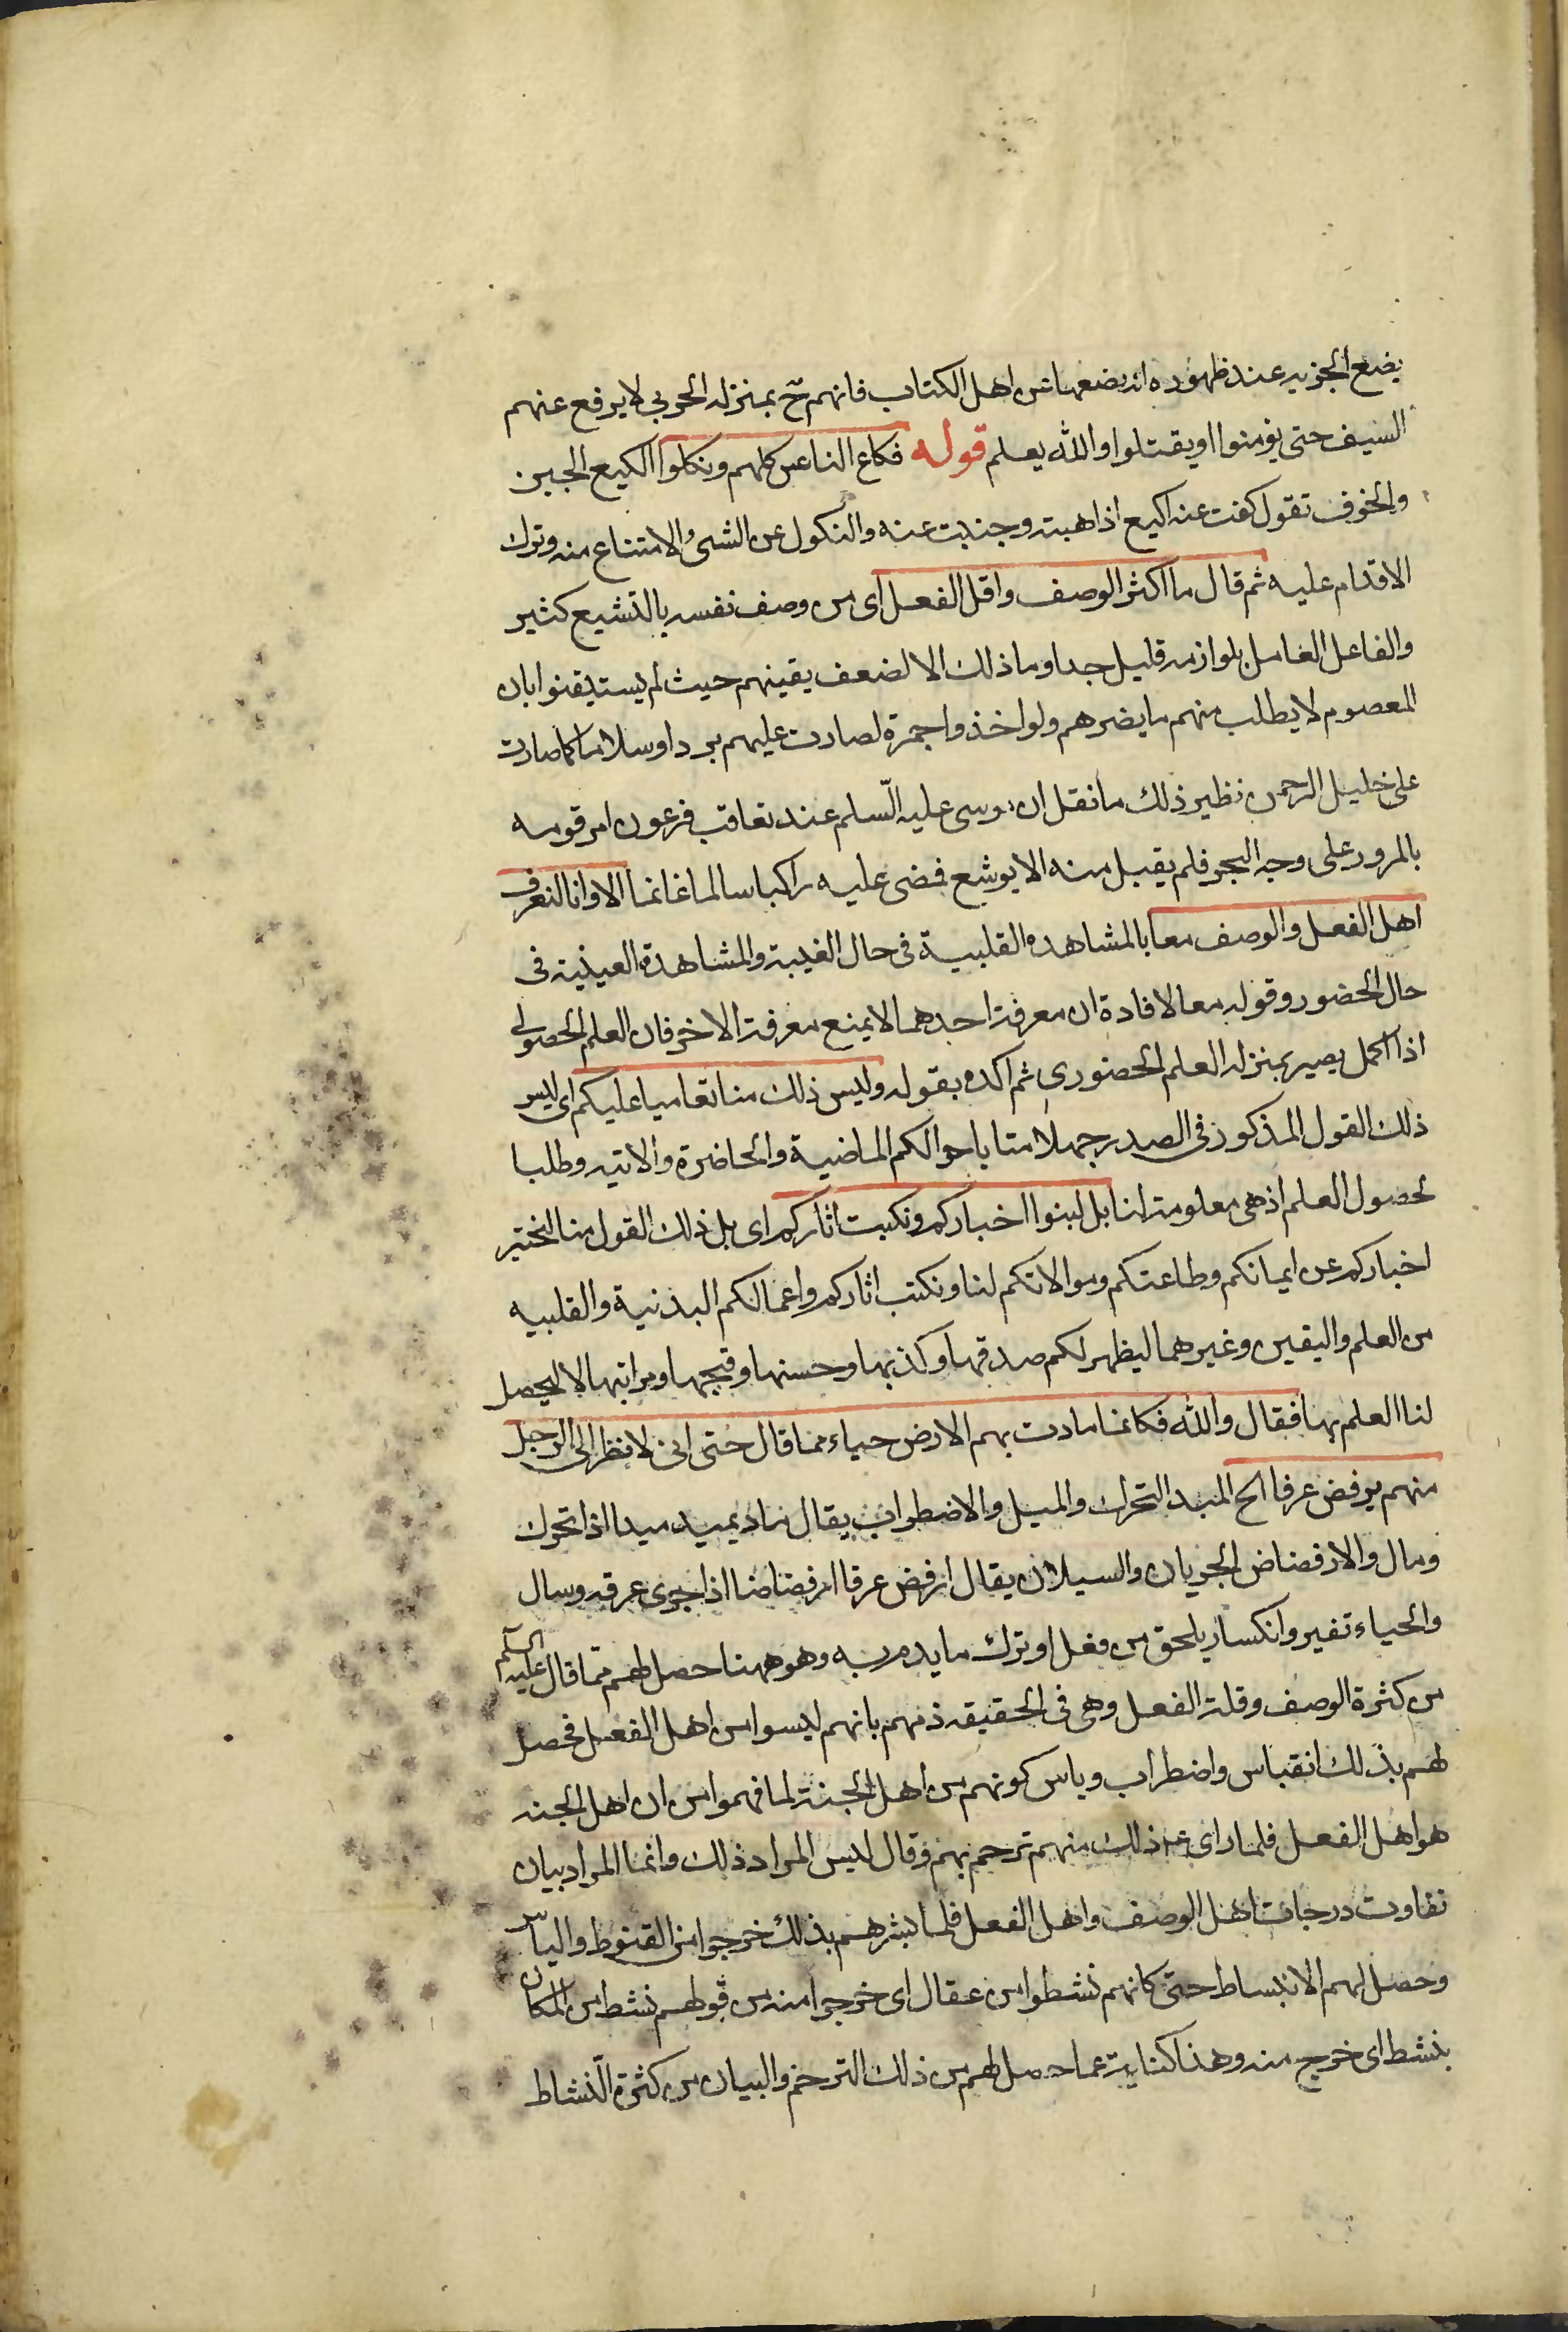 يضع الجزيه عند ظهوره انه يضعها عن اهل الكتاب فانهم ح بمنزله الحربي لا يرفع عنهم
السيف حتى يؤمنوا او يقتلوا والله يعلم قوله فكاع الناس كلهم ونكلوا الكيع الجبن
والخوف تقول كعت عنه اكيع اذا هبته وجنبت عنه والنكول عن الشئ الامتناع منه وترك
الاقدام عليه ثم قال ما اكثر الوصف واقل الفعل اى من وصف نفسه بالتشيع كثير
والفاعل العامل بلوازمه قليل جدا وما ذلك الا لضعف يقينهم حيث لم يستيقنوا بان
المعصوم لا يطلب منهم ما يضرهم ولو اخذوا جمرة لصارت عليهم بردا وسلاما كما صارت
على خليل الرحمن نظير ذلك ما نقل ان موسى عليه السلم عند تعاقب فرعون امر قومه
بالمرور على وجه البحر فلم يقبل منه الا يوشع فمضى عليه راكبا سالما غانما الا وانا لنعرف
اهل الفعل والوصف معا بالمشاهده القلبية فى حال الغيبة والمشاهدة العينية فى
حال الحضور وقوله معا لافادة ان معرفة احدهما لا يمنع معرفة الاخر فان العلم الحصولى
اذا اكمل يصير بمنزله العلم الحضورى ثم اكده بقوله وليس ذلك منا تعاميا عليكم اى ليس
ذلك القول المذكور فى الصدر جهلا منا باحوالكم الماضية والحاضرة والاتيه وطلبا
لحصول العلم اذ هى معلومة لنا بل لبنوا اخباركم ونكبت اثاركم اى بل ذلك القول منا لنختبر
اخباركم عن ايمانكم وطاعتكم وموالاتكم لنا ونكتب اثاركم واعمالكم البدنية والقلبيه
من العلم واليقين وغيرهما ليظهر لكم صدقها وكذبها وحسنها وقبحها ومراتبها لا ليحصل
لنا العلم بها فقال والله فكانما مادت بهم الارض حياء مما قال حتى انى لانظر الى الرجل
منهم يرفض عرقا الح الميد التحرك والميل والاضطراب يقال ماد يميد ميدا اذا تحرك
ومال والارفضاض الجريان والسيلان يقال ارفض عرقا ارفضاضا اذا جرى عرقه وسال
والحياء تغير وانكسار يلحق من فعل او ترك ما يذم به وهو ههنا حصل لهم مما قال عليه السلم
من كثرة الوصف وقلة الفعل وهى فى الحقيقه ذمهم بانهم ليسوا من اهل الفعل فحصل
لهم بذلك انقباس واضطراب وياس كونهم من اهل الجنة لما فهموا من ان اهل الجنه
هو اهل الفعل فلما راى ع ذلك منهم ترحم بهم وقال ليس المراد ذلك وانما المراد بيان
تفاوت درجات اهل الوصف واهل الفعل فلما بشرهم بذلك خرجوا من القنوط والياس
وحصل لهم الانبساط حتى كانهم نشطوا من عقال اى خرجوا منه من قولهم نشط من المكان
ينشط اى خرج منه وهذا كناية عما حصل لهم من ذلك الترحم والبيان من كثرة النشاط